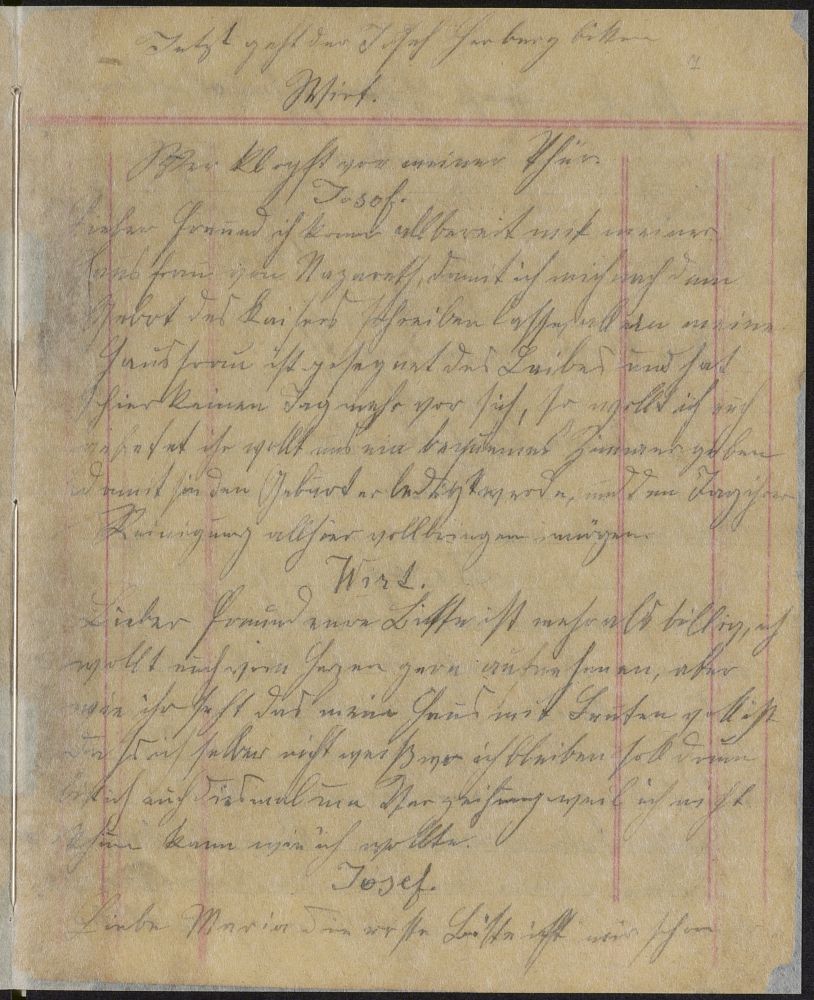 Jetzt geht der Josef Herberg bitten
Wirt.
Wer klopft vor meiner Thür.
Josof.
Lieber Freund ich komme allbereit mit meiner
Hausfrau von Nazareth, damit ich mich nach dem
Gebot des Kaisers schreiben lasse, allein meine
Hausfrau ist gesegnet des Leibes und hat
schier keinen Tag mehr vor sich, so wollt ich euch
ihr wollt uns ein bequemes Zimmer geben
damit sie den Geburt erledigt werde, und den Tag ihrer
Reinigung allhier vollbringen mögen
Wirt.
Lieber Freund eure Bitte ist mehr als billig, ich
wollt euch von Herzen gern aufnehmen, aber
wie ihr seht das mein Haus mit Leuten voll ist
das ich selber nicht weiß wo ich bleiben soll drum
bitt ich euch diesmal um Verzeihung weil ich nicht
thun kann wie ich wollte.
Josef.
Liebe Maria die erste Bitte ist mir schon